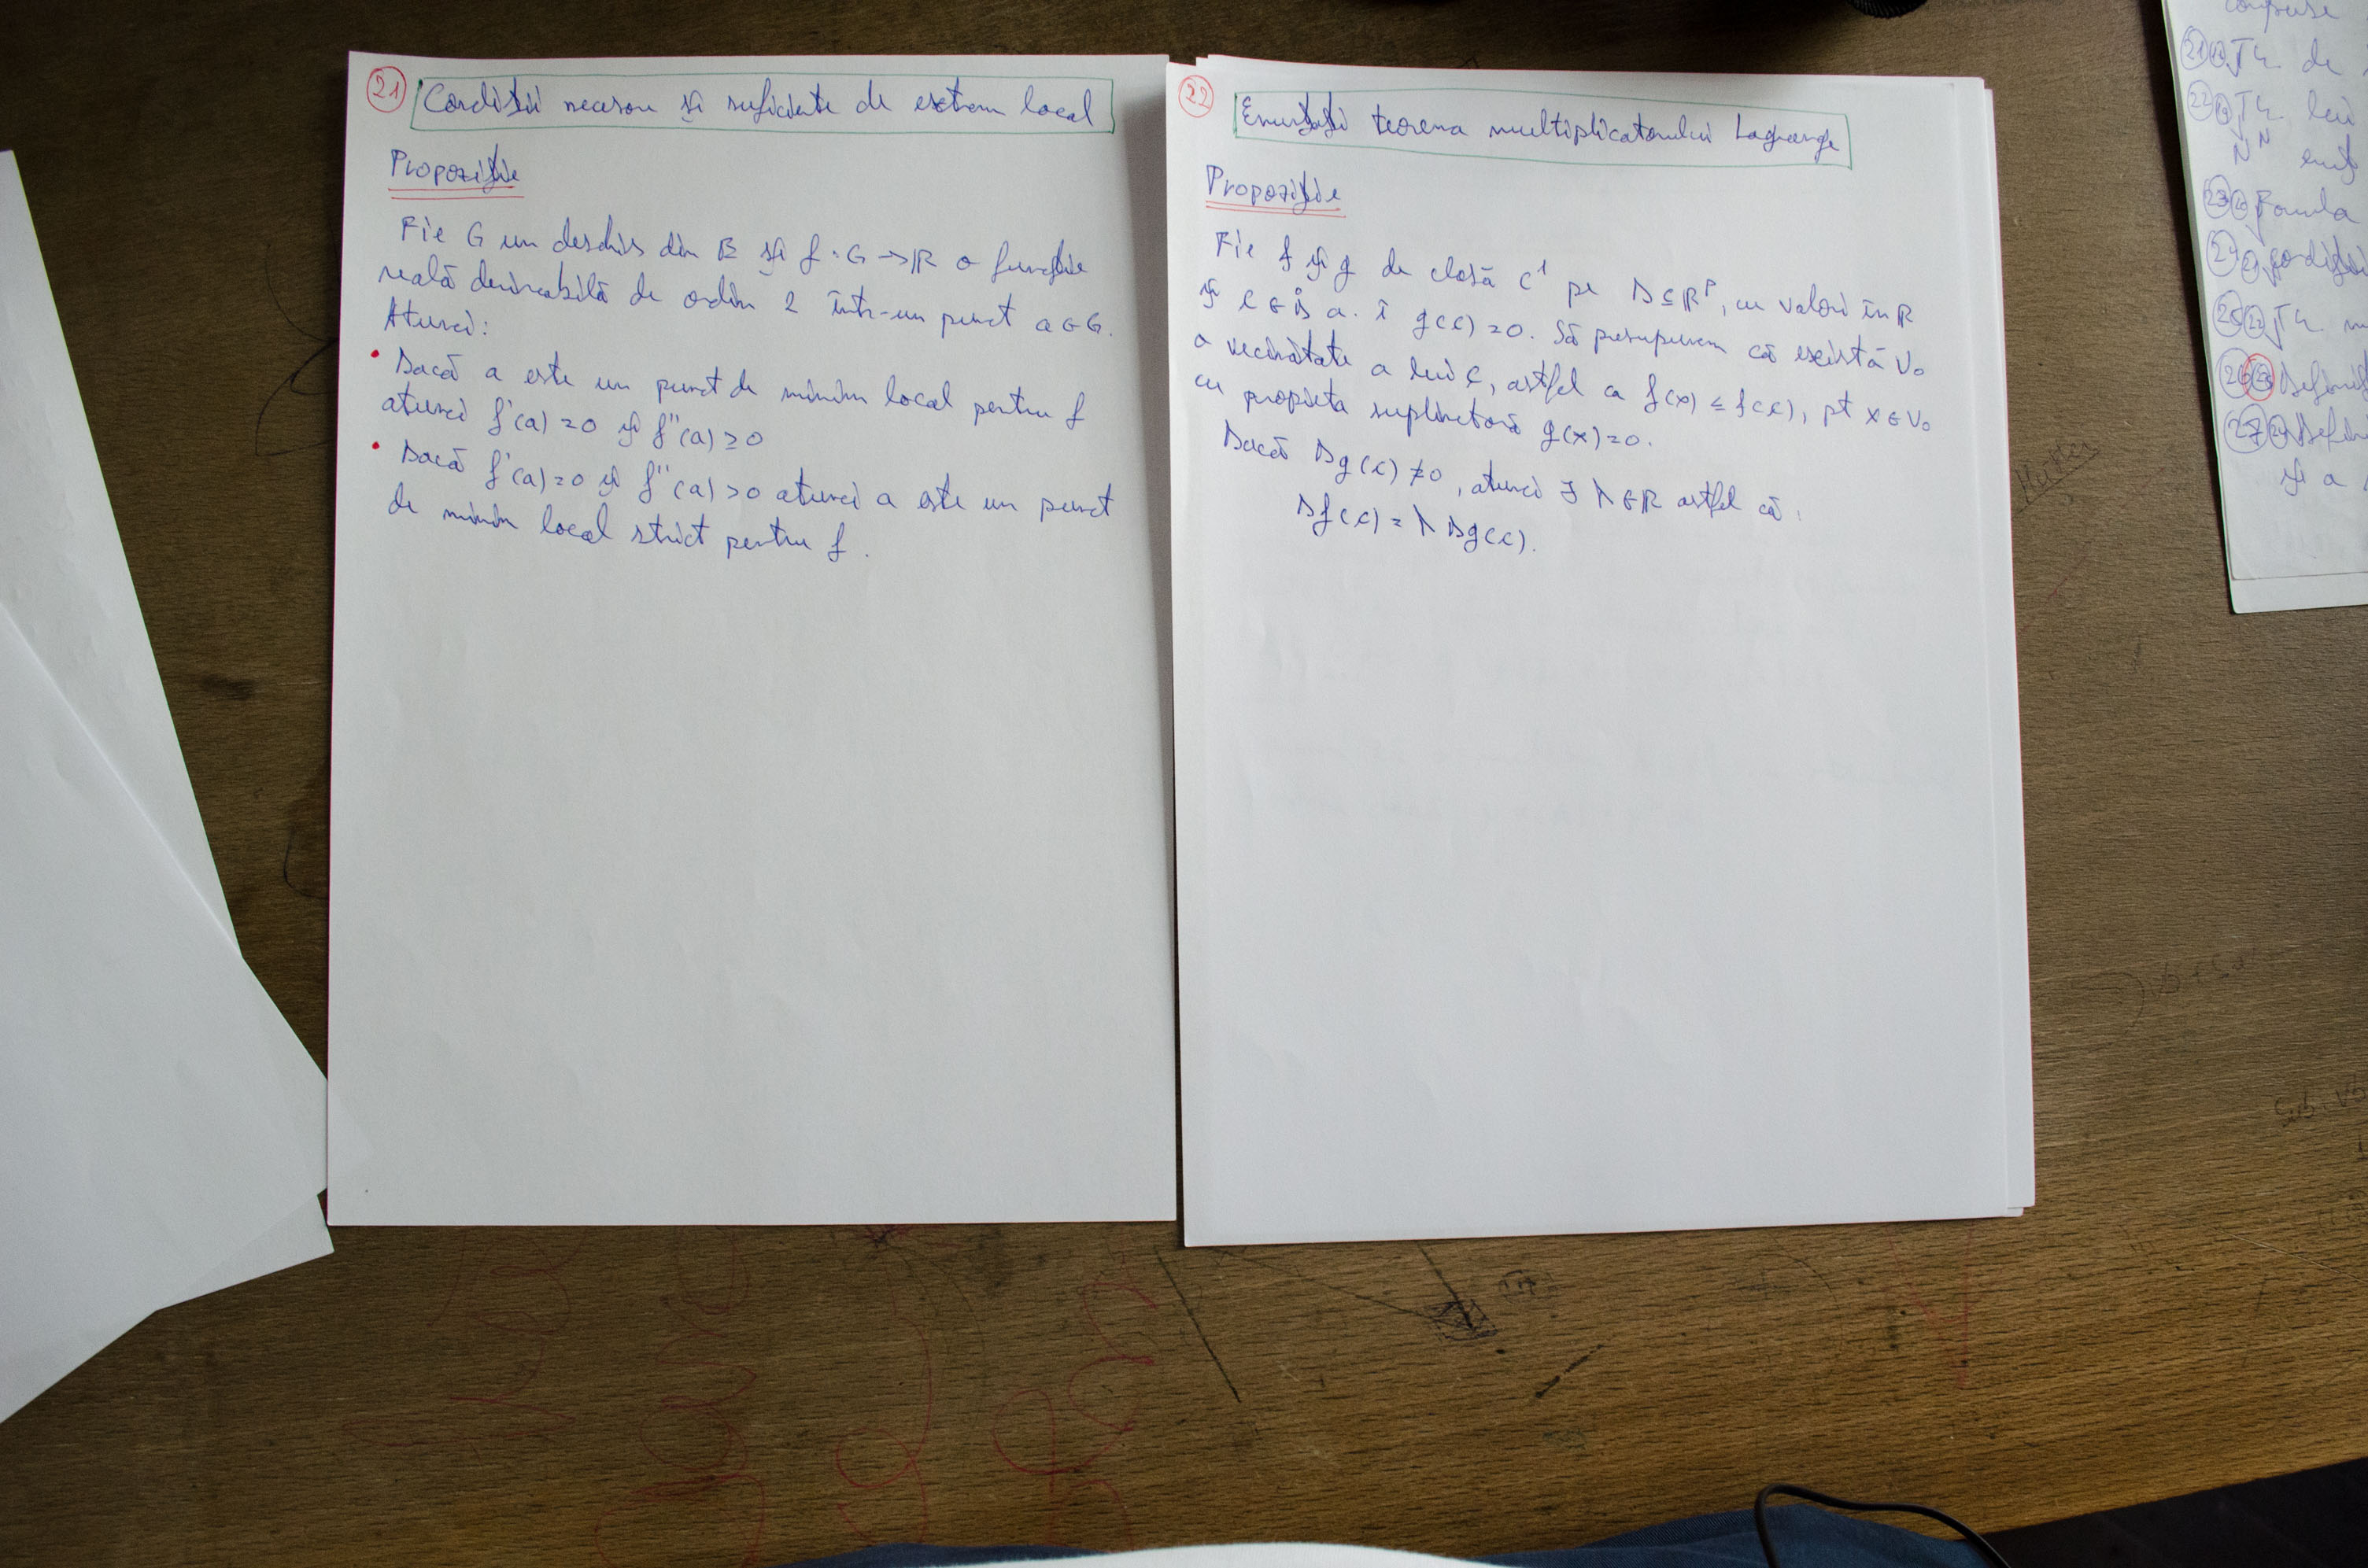 21 Condiții necesare și suficiente de extrem local
Propoziție
Fie G un deschis din B și f : G → R o funcție
reală derivabilă de ordin 2 într-un punct a ∈ G.
Atunci:
• Dacă a este un punct de minim local pentru f
atunci f'(a) = 0 și f''(a) ≥ 0
• Dacă f'(a) = 0 și f''(a) > 0 atunci a este un punct
de minim local strict pentru f.
22 Enunțați teorema multiplicatorului Lagrange
Propoziție
Fie f și g de clasă C¹ pe D ⊆ Rᴾ, cu valori în R
și c ∈ D̊ a. î g(c) = 0. Să presupunem că există V₀
o vecinătate a lui c, astfel ca f(x) ≤ f(c), pt x ∈ V₀
cu propieta suplimetară g(x) = 0.
Dacă Dg(c) ≠ 0, atunci ∃ λ ∈ R astfel că:
Df(c) = λ Dg(c).
compuse
21 Th. de
22 Th. lui
23 Formula
24 21 Condiții
25 22 Th. m
26
27
și a